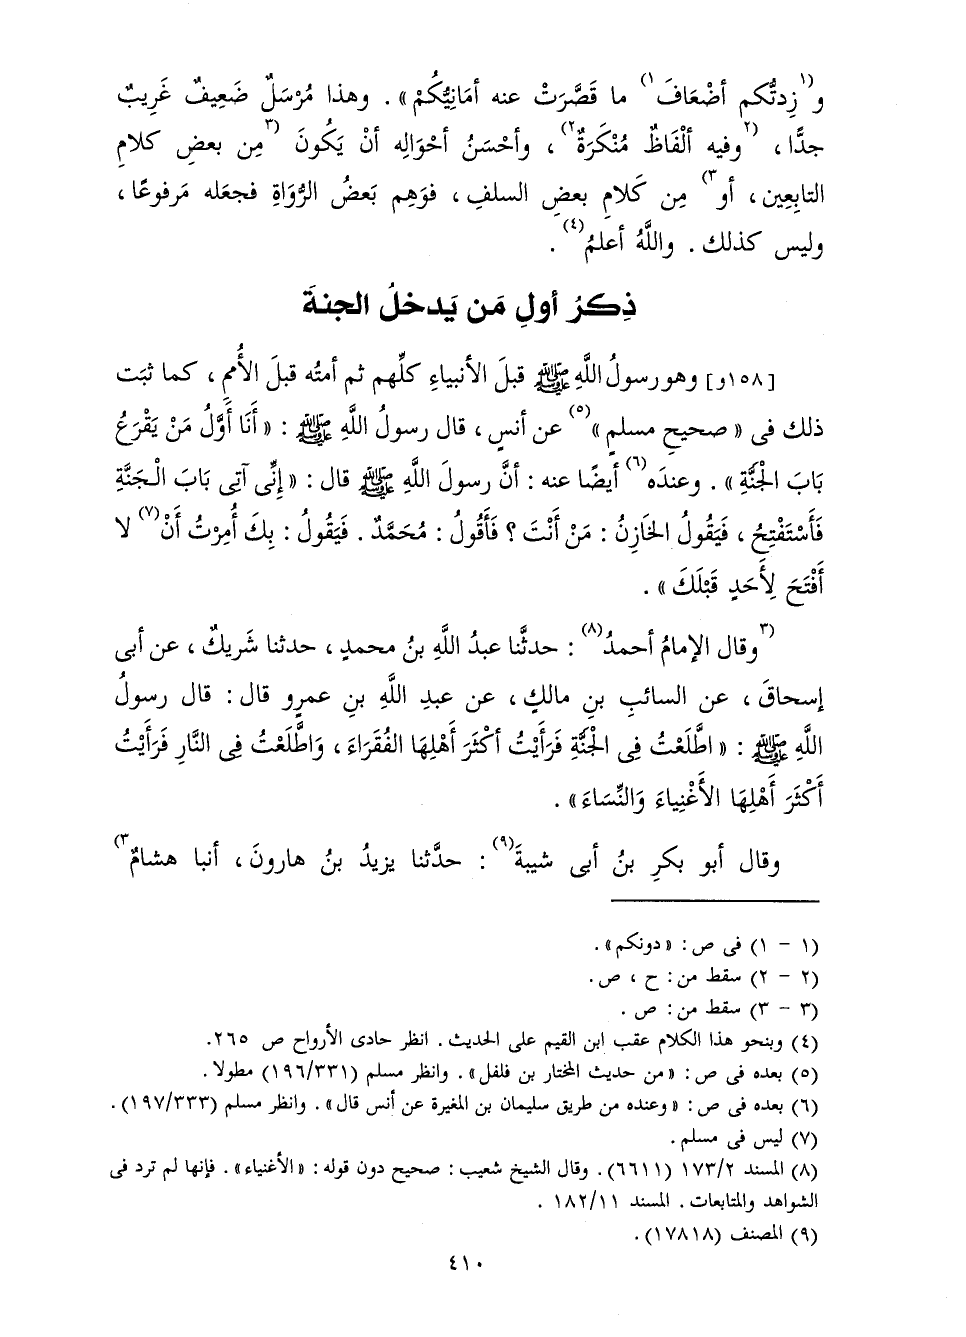 و(١زِدتُّكم أضْعَافَ١) ما قَصَّرَتْ عنه أمَانِيُّكُمْ» . وهذا مُرْسَلٌ ضَعيفٌ غَرِيبٌ
جدًّا ، (٢وفيه ألْفَاظٌ مُنْكَرَةٌ٢) ، وأحْسَنُ أحْوَالِه أنْ يَكُونَ (٣مِن بعضِ كلامِ
التابِعِين ، أو٣) مِن كَلامِ بعضِ السلفِ ، فوَهِم بَعضُ الرُّوَاةِ فجعَله مَرفوعًا ،
وليس كذلك . واللَّهُ أعلمُ(٤) .
ذِكرُ أولِ مَن يَدخلُ الجنةَ
[١٥٨و] وهو رسولُ اللَّهِ ﷺ قبلَ الأنبياءِ كلِّهم ثم أمتُه قبلَ الأُممِ ، كما ثبَت
ذلك فى « صحيحِ مسلمٍ »(٥) عن أنسٍ ، قال رسولُ اللَّهِ ﷺ : « أَنَا أَوَّلُ مَنْ يَقْرَعُ
بَابَ الجَنَّةِ » . وعندَه(٦) أيضًا عنه : أنَّ رسولَ اللَّهِ ﷺ قال : « إِنِّى آتِى بَابَ الْجَنَّةِ
فَأَسْتَفْتِحُ ، فَيَقُولُ الخَازِنُ : مَنْ أَنْتَ ؟ فَأَقُولُ : مُحَمَّدٌ . فَيَقُولُ : بِكَ أُمِرْتُ أَنْ(٧) لا
أَفْتَحَ لِأَحَدٍ قَبْلَكَ » .
(٣وقال الإمامُ أحمدُ(٨) : حدثَّنا عبدُ اللَّهِ بنُ محمدٍ ، حدثنا شَريكٌ ، عن أبى
إسحاقَ ، عن السائبِ بنِ مالكٍ ، عن عبدِ اللَّهِ بنِ عمرٍو قال : قال رسولُ
اللَّهِ ﷺ : « اطَّلَعْتُ فِى الجَنَّةِ فَرَأَيْتُ أكْثَرَ أَهْلِهَا الفُقَرَاءَ ، وَاطَّلَعْتُ فِى النَّارِ فَرَأَيْتُ
أَكْثَرَ أَهْلِهَا الأَغْنِياءَ وَالنِّسَاءَ» .
وقال أبو بكرِ بنُ أبى شيبةَ(٩) : حدَّثنا يزيدُ بنُ هارونَ ، أنبا هشامٌ٣)
(١ - ١) فى ص : «دونكم» .
(٢ - ٢) سقط من : ح ، ص .
(٣ - ٣) سقط من : ص .
(٤) وبنحو هذا الكلام عقب ابن القيم على الحديث . انظر حادى الأرواح ص ٢٦٥.
(٥) بعده فى ص : «من حديث المختار بن فلفل» . وانظر مسلم (١٩٦/٣٣١) مطولا .
(٦) بعده فى ص : «وعنده من طريق سليمان بن المغيرة عن أنس قال» . وانظر مسلم (١٩٧/٣٣٣) .
(٧) ليس فى مسلم .
(٨) المسند ١٧٣/٢ (٦٦١١) . وقال الشيخ شعيب : صحيح دون قوله : «الأغنياء» . فإنها لم ترد فى
الشواهد والمتابعات . المسند ١٨٢/١١ .
(٩) المصنف (١٧٨١٨) .
٤١٠